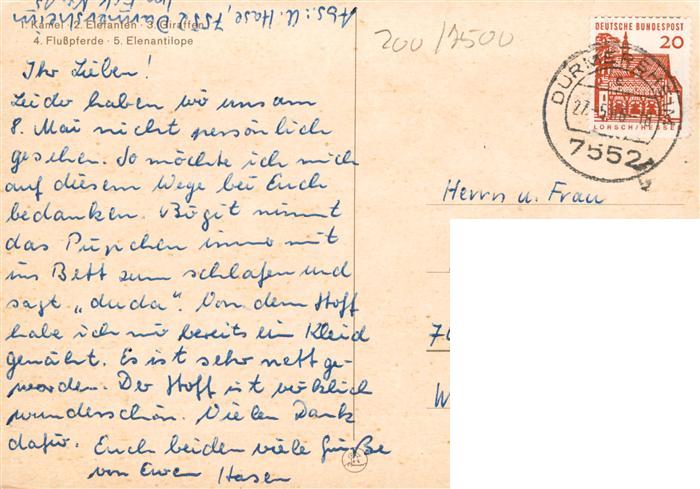 Abs: U. Hase, 7552 Durmersheim
1. Kamel · 2. Elefanten · 3. Giraffen
4. Flußpferde · 5. Elenantilope
200/2500
DEUTSCHE BUNDESPOST
20
LORSCH/HESSEN
DURMERSHEIM
7552
Ihr Lieben!
Leider haben wir uns am
8. Mai nicht persönlich
gesehen. So möchte ich mich
auf diesem Wege bei Euch
bedanken. Birgit nimmt
das Püpchen immer mit
ins Bett zum schlafen und
sagt „duda“. Von dem Stoff
habe ich mir bereits ein Kleid
genäht. Es ist sehr nett ge-
worden. Der Stoff ist wirklich
wunderschön. Vielen Dank
dafür. Euch beiden viele Grüße
von Euren Hasen
Herrn u. Frau
70
W